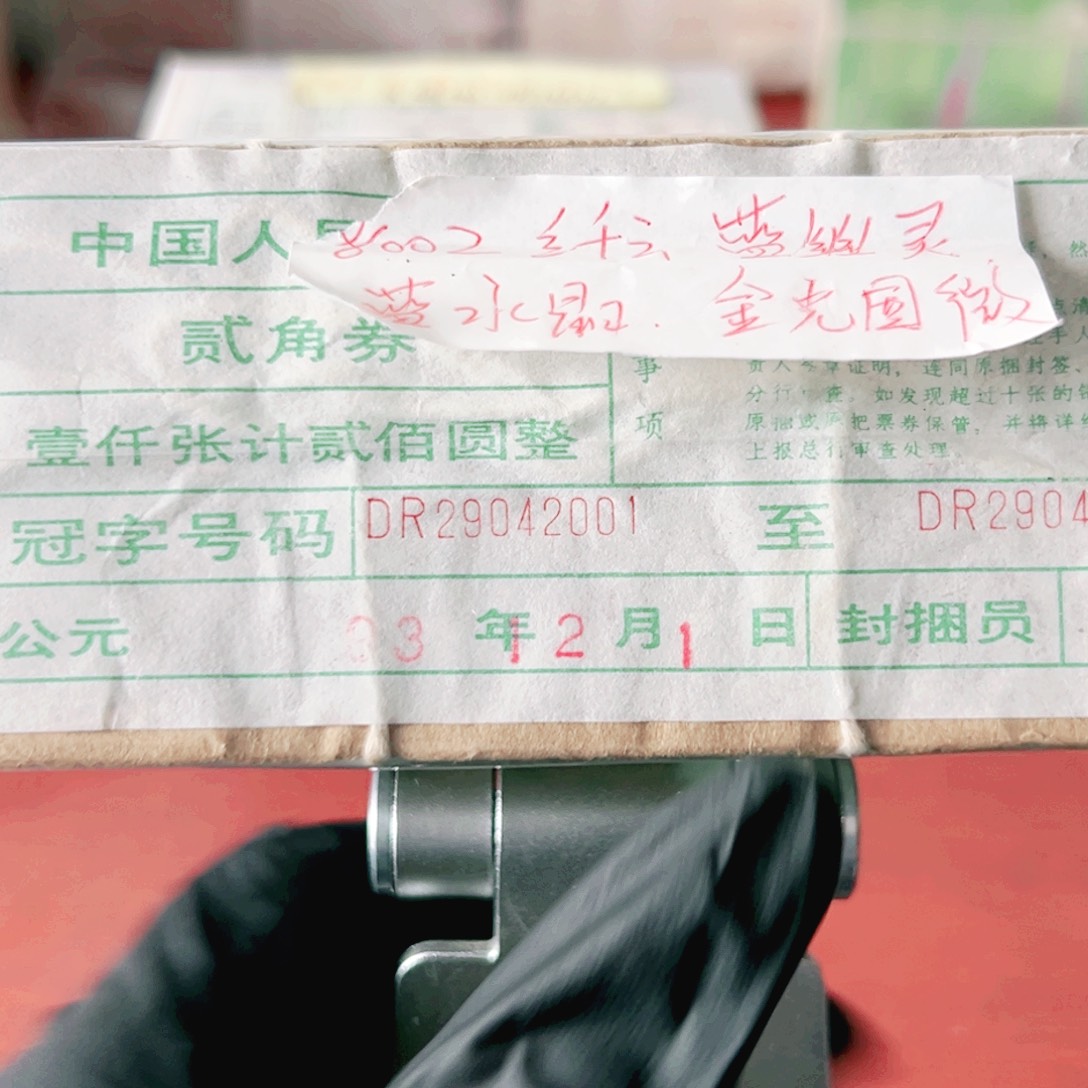 8002 红千云 蓝幽灵
蓝水晶 . 金光国徽
中国人民
贰角券
壹仟张计贰佰圆整
事
项
责人 证明，连同原捆封签、
分行 查。如发现超过十张的
原捆或 把票券保管，并将详
上报总行审查处理。
冠字号码 DR29042001 至 DR2904
公元 03 年 12 月 1 日 封捆员